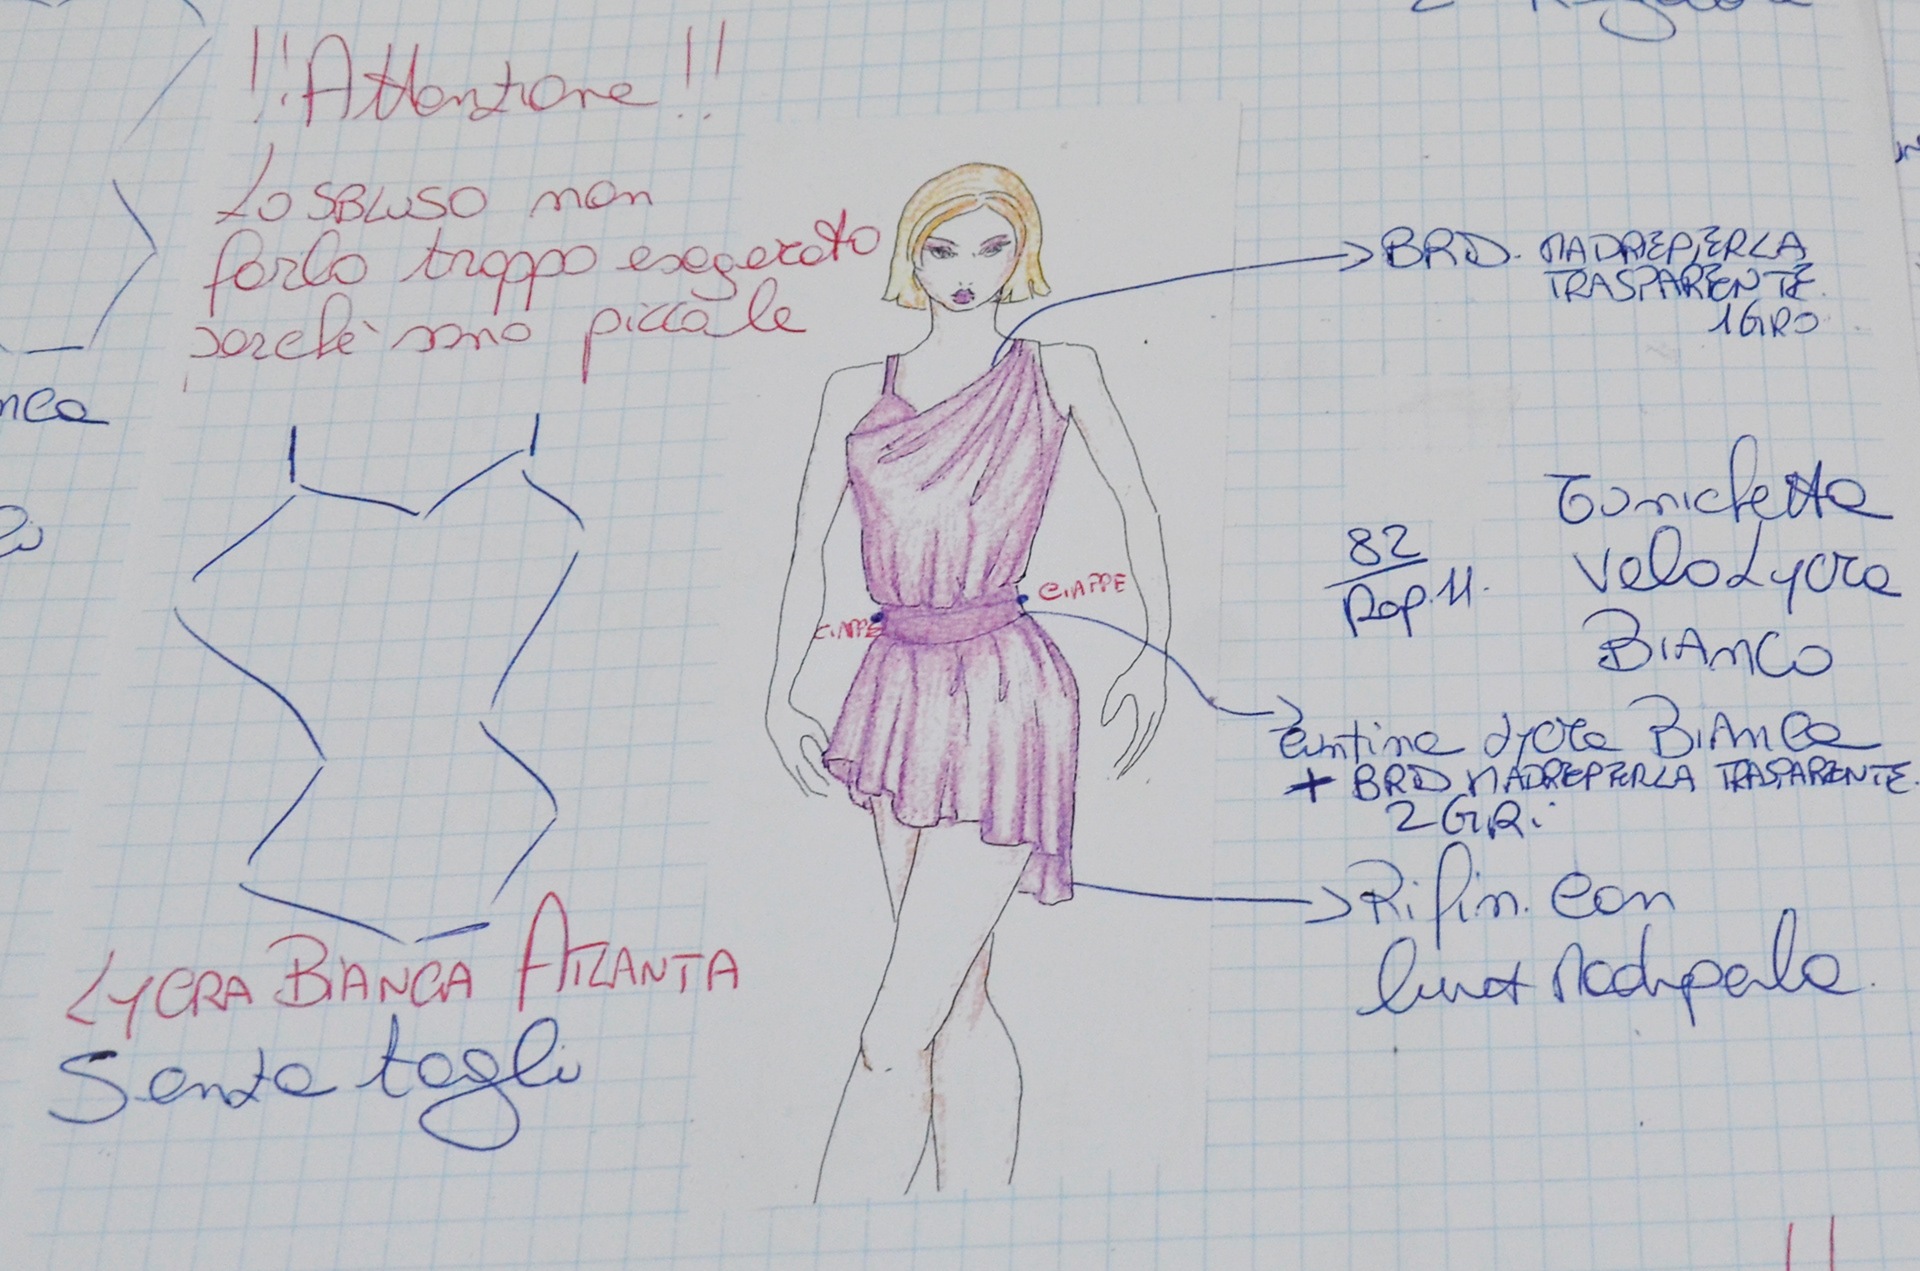 !! Attenzione !!
Lo SBLUSO non
farlo troppo esagerato
perchè sono piccole
BRD. MADREPERLA
TRASPARENTE
1 GIRO
Tunichetta
Velo Lycra
BIANCO
82
Rap. 11.
CIAPPE
CIAPPE
Cintina Lycra BIANCA
+ BRD MADREPERLA TRASPARENTE.
2 GIRI
Rifin. con
Madreperla.
LYCRA BIANCA ATLANTA
Senza tagli
nca
!!